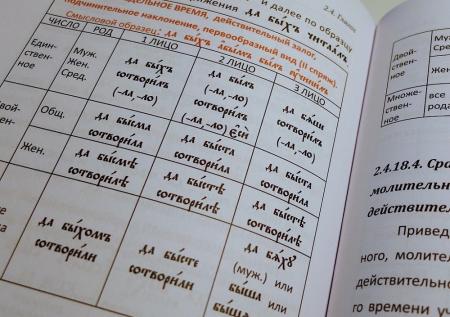 и далее по образцу
2.4. Глагол
ДЕЛЬНОЕ ВРЕМЯ, действительный залог,
подчинительное наклонение, первообразный вид (II спряж.).
Смысловой образец:
ЧИСЛО РОД 1 ЛИЦО 2 ЛИЦО 3 ЛИЦО
Един-
ствен-
ное
Муж.
Жен.
Сред.
да бы́хъ
сотвори́лъ
(-ла, -ло)
да бы́лъ
сотвори́лъ
(-ла, -ло)
(-ла, -ло) є҆сѝ
да бы́ши
сотвори́лъ
(-ла, -ло)
Общ.
да бы́сма
сотвори́ла
да бы́ста
сотвори́ла
да бы́ста
сотвори́ла
Жен.
да бы́смѣ
сотвори́лѣ
да бы́стѣ
сотвори́лѣ
да бы́стѣ
сотвори́лѣ
да бы́хомъ
сотвори́ли
да бы́сте
сотвори́ли
(муж.) или
Двой-
ствен-
ное
Жен.
Множе-
ствен-
ное
все
рода
2.4.18.4. Сра
молительн
действите
Привед
ного, молите
действительно
го времени уч